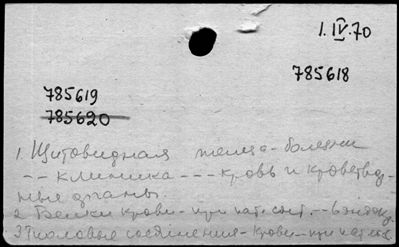 1.IV.70
785618
785619
785620
1. Щитовидная железа - болезни
-- клиника --- кровь и кроветвор-
ные органы.
2. Белки крови - при пат. сост. -
3. Тиоловые соединения - крови - при пат.